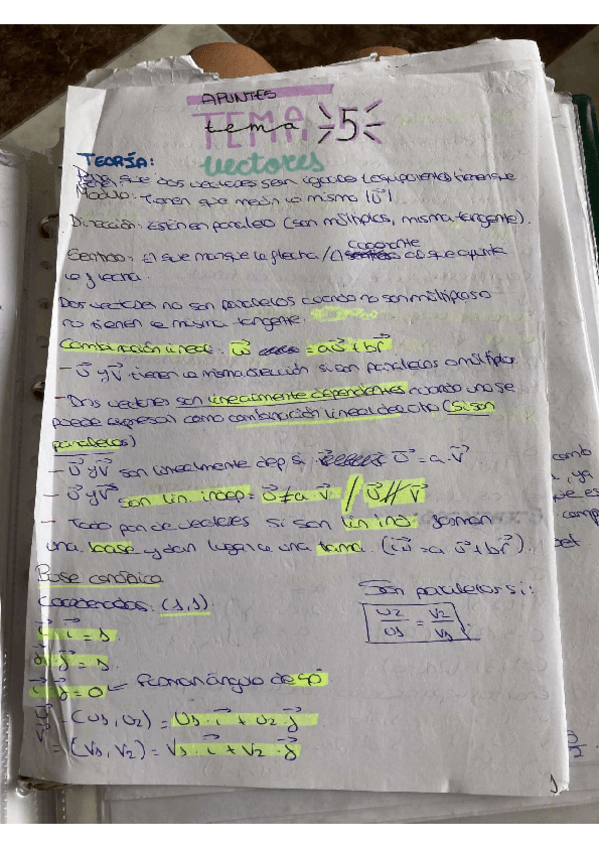 APUNTES
TEMA 5
tema
vectores
TEORÍA:
que dos vectores sean iguales (equipolentes) tienen que
Módulo: Tienen que medir lo mismo |u⃗|
Dirección: Estén en paralelo (son múltiplos, misma tangente).
Sentido: El que marque la flecha / al que apunte
la flecha.
Dos vectores no son paralelos cuando no son múltiplos o
no tienen la misma tangente.
Combinación lineal: w⃗ = au⃗ + bv⃗
- u⃗ y v⃗ tienen la misma dirección si son paralelos o múltiplos
- Dos vectores son linealmente dependientes cuando uno se
puede expresar como combinación lineal del otro (si son
paralelos)
- u⃗ y v⃗ son linealmente dep si u⃗ = a · v⃗
- u⃗ y v⃗ son lin. indep = u⃗ ≠ a · v⃗ / u⃗ ∦ v⃗
- Todo par de vectores si son lin ind. forman
una base y dan lugar a una (w⃗ = a u⃗ + b v⃗).
Base canónica
Coordenadas: (1,1)
Son paralelos si:
u2/u1 = v2/v1
i⃗ · i⃗ = 1
j⃗ · j⃗ = 1
i⃗ · j⃗ = 0 ← Forman ángulo de 90
(u1, u2) = u1 · i⃗ + u2 · j⃗
= (v1, v2) = v1 · i⃗ + v2 · j⃗
1